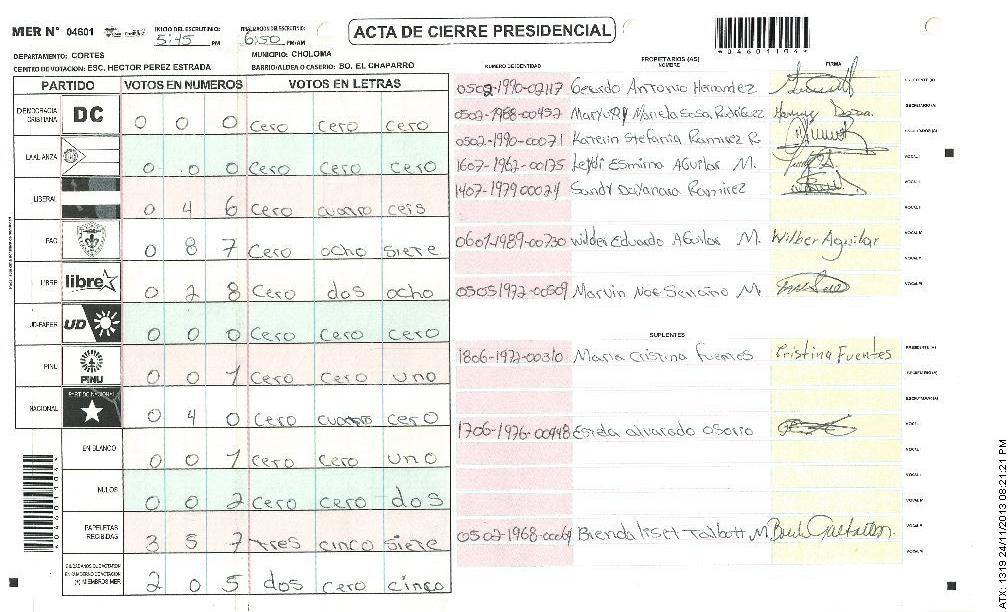 MER N° 04601 INICIO DEL ESCRUTINIO: 5:45 PM FINALIZACION DEL ESCRUTINIO: 6:50 PM/AM ACTA DE CIERRE PRESIDENCIAL
DEPARTAMENTO: CORTES MUNICIPIO: CHOLOMA
CENTRO DE VOTACION: ESC. HECTOR PEREZ ESTRADA BARRIO/ALDEA O CASERIO: BO. EL CHAPARRO
PARTIDO VOTOS EN NUMEROS VOTOS EN LETRAS
DEMOCRACIA CRISTIANA DC 0 0 0 cero cero cero
0 0 0 cero cero cero
LIBERAL 0 4 6 cero cuatro ceis
PAC 0 8 7 cero ocho siete
LIBRE libre 0 2 8 cero dos ocho
UD-FAPER UD 0 0 0 cero cero cero
PINU PINU 0 0 1 cero cero uno
NACIONAL PARTIDO NACIONAL 0 4 0 cero cuatro cero
EN BLANCO 0 0 1 cero cero uno
NULOS 0 0 2 cero cero dos
PAPELETAS RECIBIDAS 3 5 7 tres cinco siete
(+) MIEMBROS MER 2 0 5 dos cero cinco
*04601104*
PROPIETARIOS (AS)
NUMERO DE IDENTIDAD NOMBRE FIRMA
0502-1990-02117 Gerardo Antonio Hernandez
0502-1988-00452 Mariela Sosa Rodriguez SECRETARIO (A)
0502-1990-00071 Karerin Stefania Ramirez R ESCRUTADOR (A)
1607-1962-00175 Leydi Esmirna Aguilar M. VOCAL I
1407-1979 00024 Sandy Dayanara Ramirez
0601-1989-00730 Wilder Eduardo Aguilar M. Wilber Aguilar
0505 1972-00509 Marvin Noe M.
SUPLENTES
1806-1972-00310 Maria Cristina Fuentes Cristina Fuentes PRESIDENTE (A)
SECRETARIO (A)
ESCRUTADOR (A)
1706-1976-00448 Estela alvarado osorio VOCAL I
0502-1968-0064 Brenda liset Talbott M
*04601104*
ATX: 1319 24/11/2013 08:21:21 PM